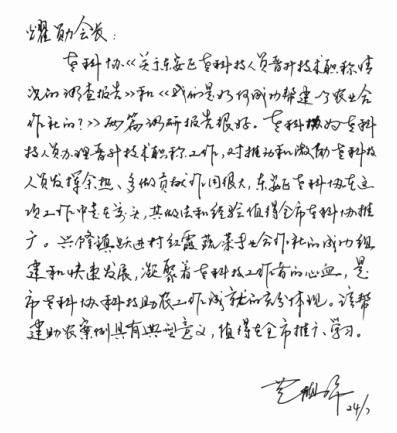 耀勋会长：
老科协《关于东安区老科技人员晋升技术职称情
况的调查报告》和《我们是如何成功帮建个农业合
作社的？》两篇调研报告很好。老科协为老科
技人员办理晋升技术职称工作，对推动和激励老科技
人员发挥余热、多做贡献作用很大，东安区老科协在这
项工作中走在前头，其做法和经验值得全市老科协推
广。兴隆镇跃进村红霞蔬菜专业合作社的成功组
建和快速发展，凝聚着老科技工作者的心血，是
市老科协科技助农工作成就的充分体现。该帮
建助农案例具有典型意义，值得在全市推广、学习。
24/7